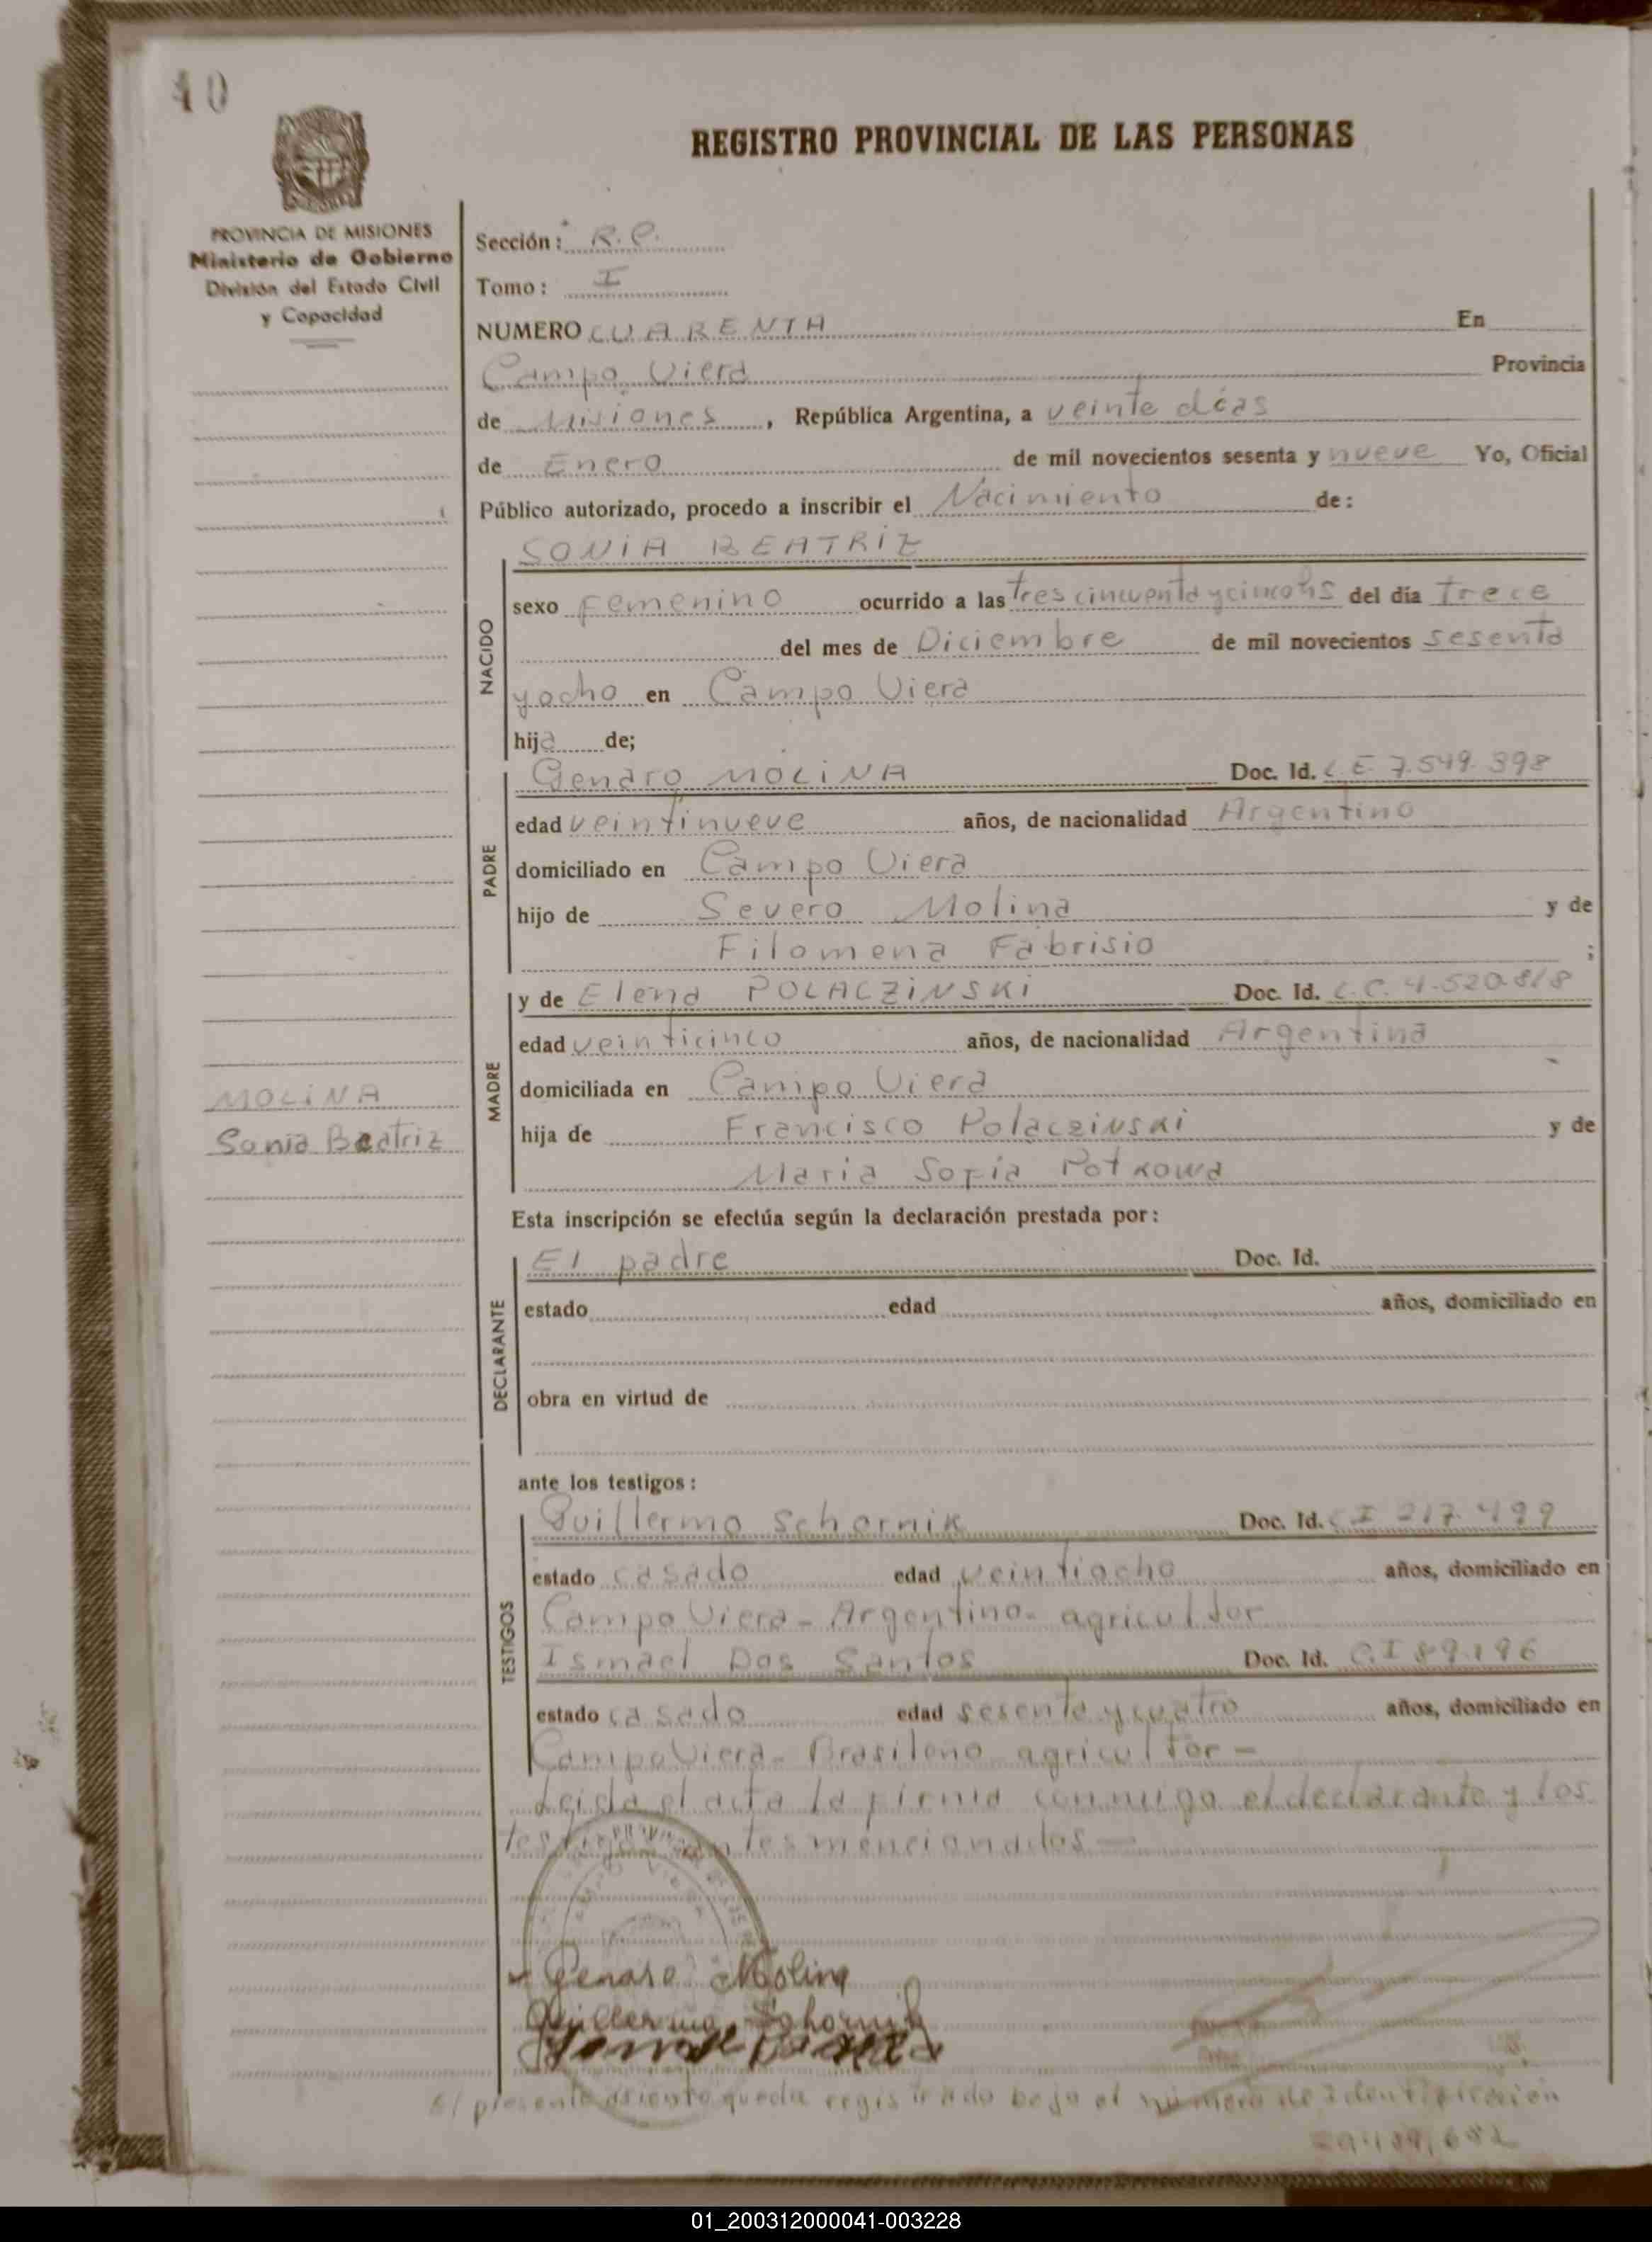 40
REGISTRO PROVINCIAL DE LAS PERSONAS
PROVINCIA DE MISIONES
Ministerio de Gobierno
División del Estado Civil
y Capacidad
Sección: R.C.
Tomo: I
NUMERO CUARENTA En
Campo Viera Provincia
de Misiones, República Argentina, a veinte días
de Enero de mil novecientos sesenta y nueve Yo, Oficial
Público autorizado, procedo a inscribir el Nacimiento de:
SONIA BEATRIZ
NACIDO
sexo Femenino ocurrido a las tres cincuenta y cinco hs del día trece
del mes de Diciembre de mil novecientos sesenta
y ocho en Campo Viera
hija de;
PADRE
Genaro MOLINA Doc. Id. L E 7.549.398
edad veintinueve años, de nacionalidad Argentino
domiciliado en Campo Viera
hijo de Severo Molina y de
Filomena Fabrisio ;
MADRE
y de Elena POLACZINSKI Doc. Id. L.C. 4.520.818
edad veinticinco años, de nacionalidad Argentina
domiciliada en Campo Viera
MOLINA
Sonia Beatriz
hija de Francisco Polaczinski y de
Maria Sofia Potkowa
Esta inscripción se efectúa según la declaración prestada por:
DECLARANTE
El padre Doc. Id.
estado edad años, domiciliado en
obra en virtud de
ante los testigos:
TESTIGOS
Guillermo Schornik Doc. Id. C I 217.499
estado casado edad veintiocho años, domiciliado en
Campo Viera - Argentino - agricultor
Ismael Dos Santos Doc. Id. C.I 89.196
estado casado edad sesenta y cuatro años, domiciliado en
Campo Viera - Brasileno agricultor -
Leida el acta la firma conmigo el declarante y los
testigos antes mencionados -
Genaro Molina
Guillermo Schornik
El presente asiento queda registrado bajo el número de Identificación
01_200312000041-003228